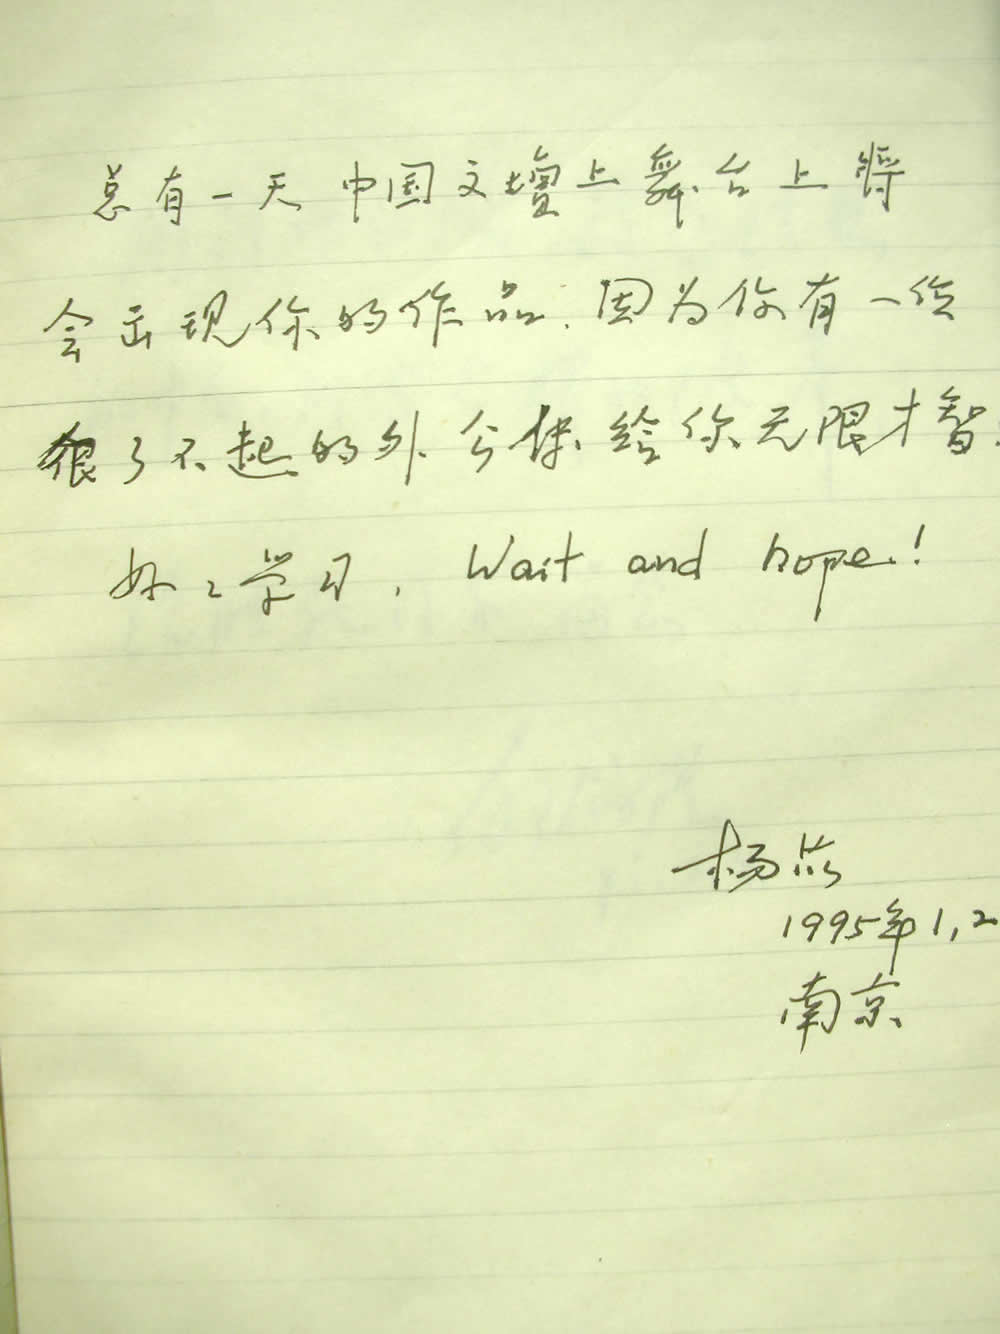 总有一天中国文壇上舞台上将
会出现你的作品.因为你有一位
很了不起的外公保给你无限才智.
好々学习, Wait and hope!
杨苡
1995年1,2
南京